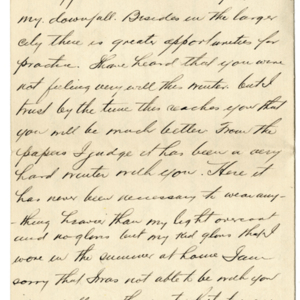 my downfall. Besides in the larger
city there is greater opportunities for
practice. I have heard that you were
not feeling very well this winter. but I
trust by the time this reaches you that
you will be much better From the
papers I judge it has been a very
hard winter with you. Here it
has never been necessary to wear any-
-thing heavier than my light overcoat
and no gloves but my kid gloves that I
wore in the summer at home I am
sorry that I was not able to be with you